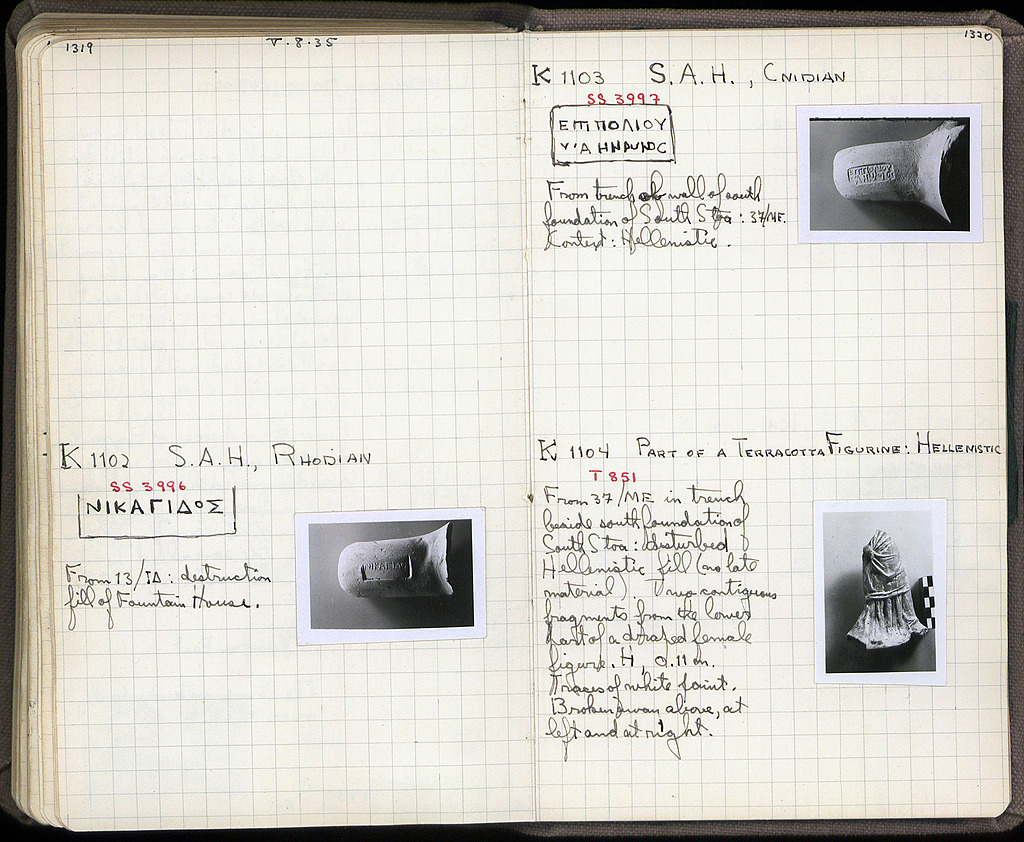 1319
V·8·35
K 1102 S.A.H., RHODIAN
SS 3996
ΝΙΚΑΓΙΔΟΣ
From 13/ΙΔ: destruction
fill of Fountain House.
1320
K 1103 S.A.H., CNIDIAN
SS 3997
ΕΠΙΠΟΛΙΟΥ
From trench wall of south
foundation of South Stoa: 37/ΜΕ.
Context: Hellenistic.
K 1104 PART OF A TERRACOTTA FIGURINE: HELLENISTIC
T 851
From 37/ΜΕ in trench
beside south foundation of
South Stoa: disturbed
Hellenistic fill (no late
material). Two contiguous
fragments from the lower
part of a draped female
figure. H, 0.11 m.
Traces of white paint.
Broken away above, at
left and at right.